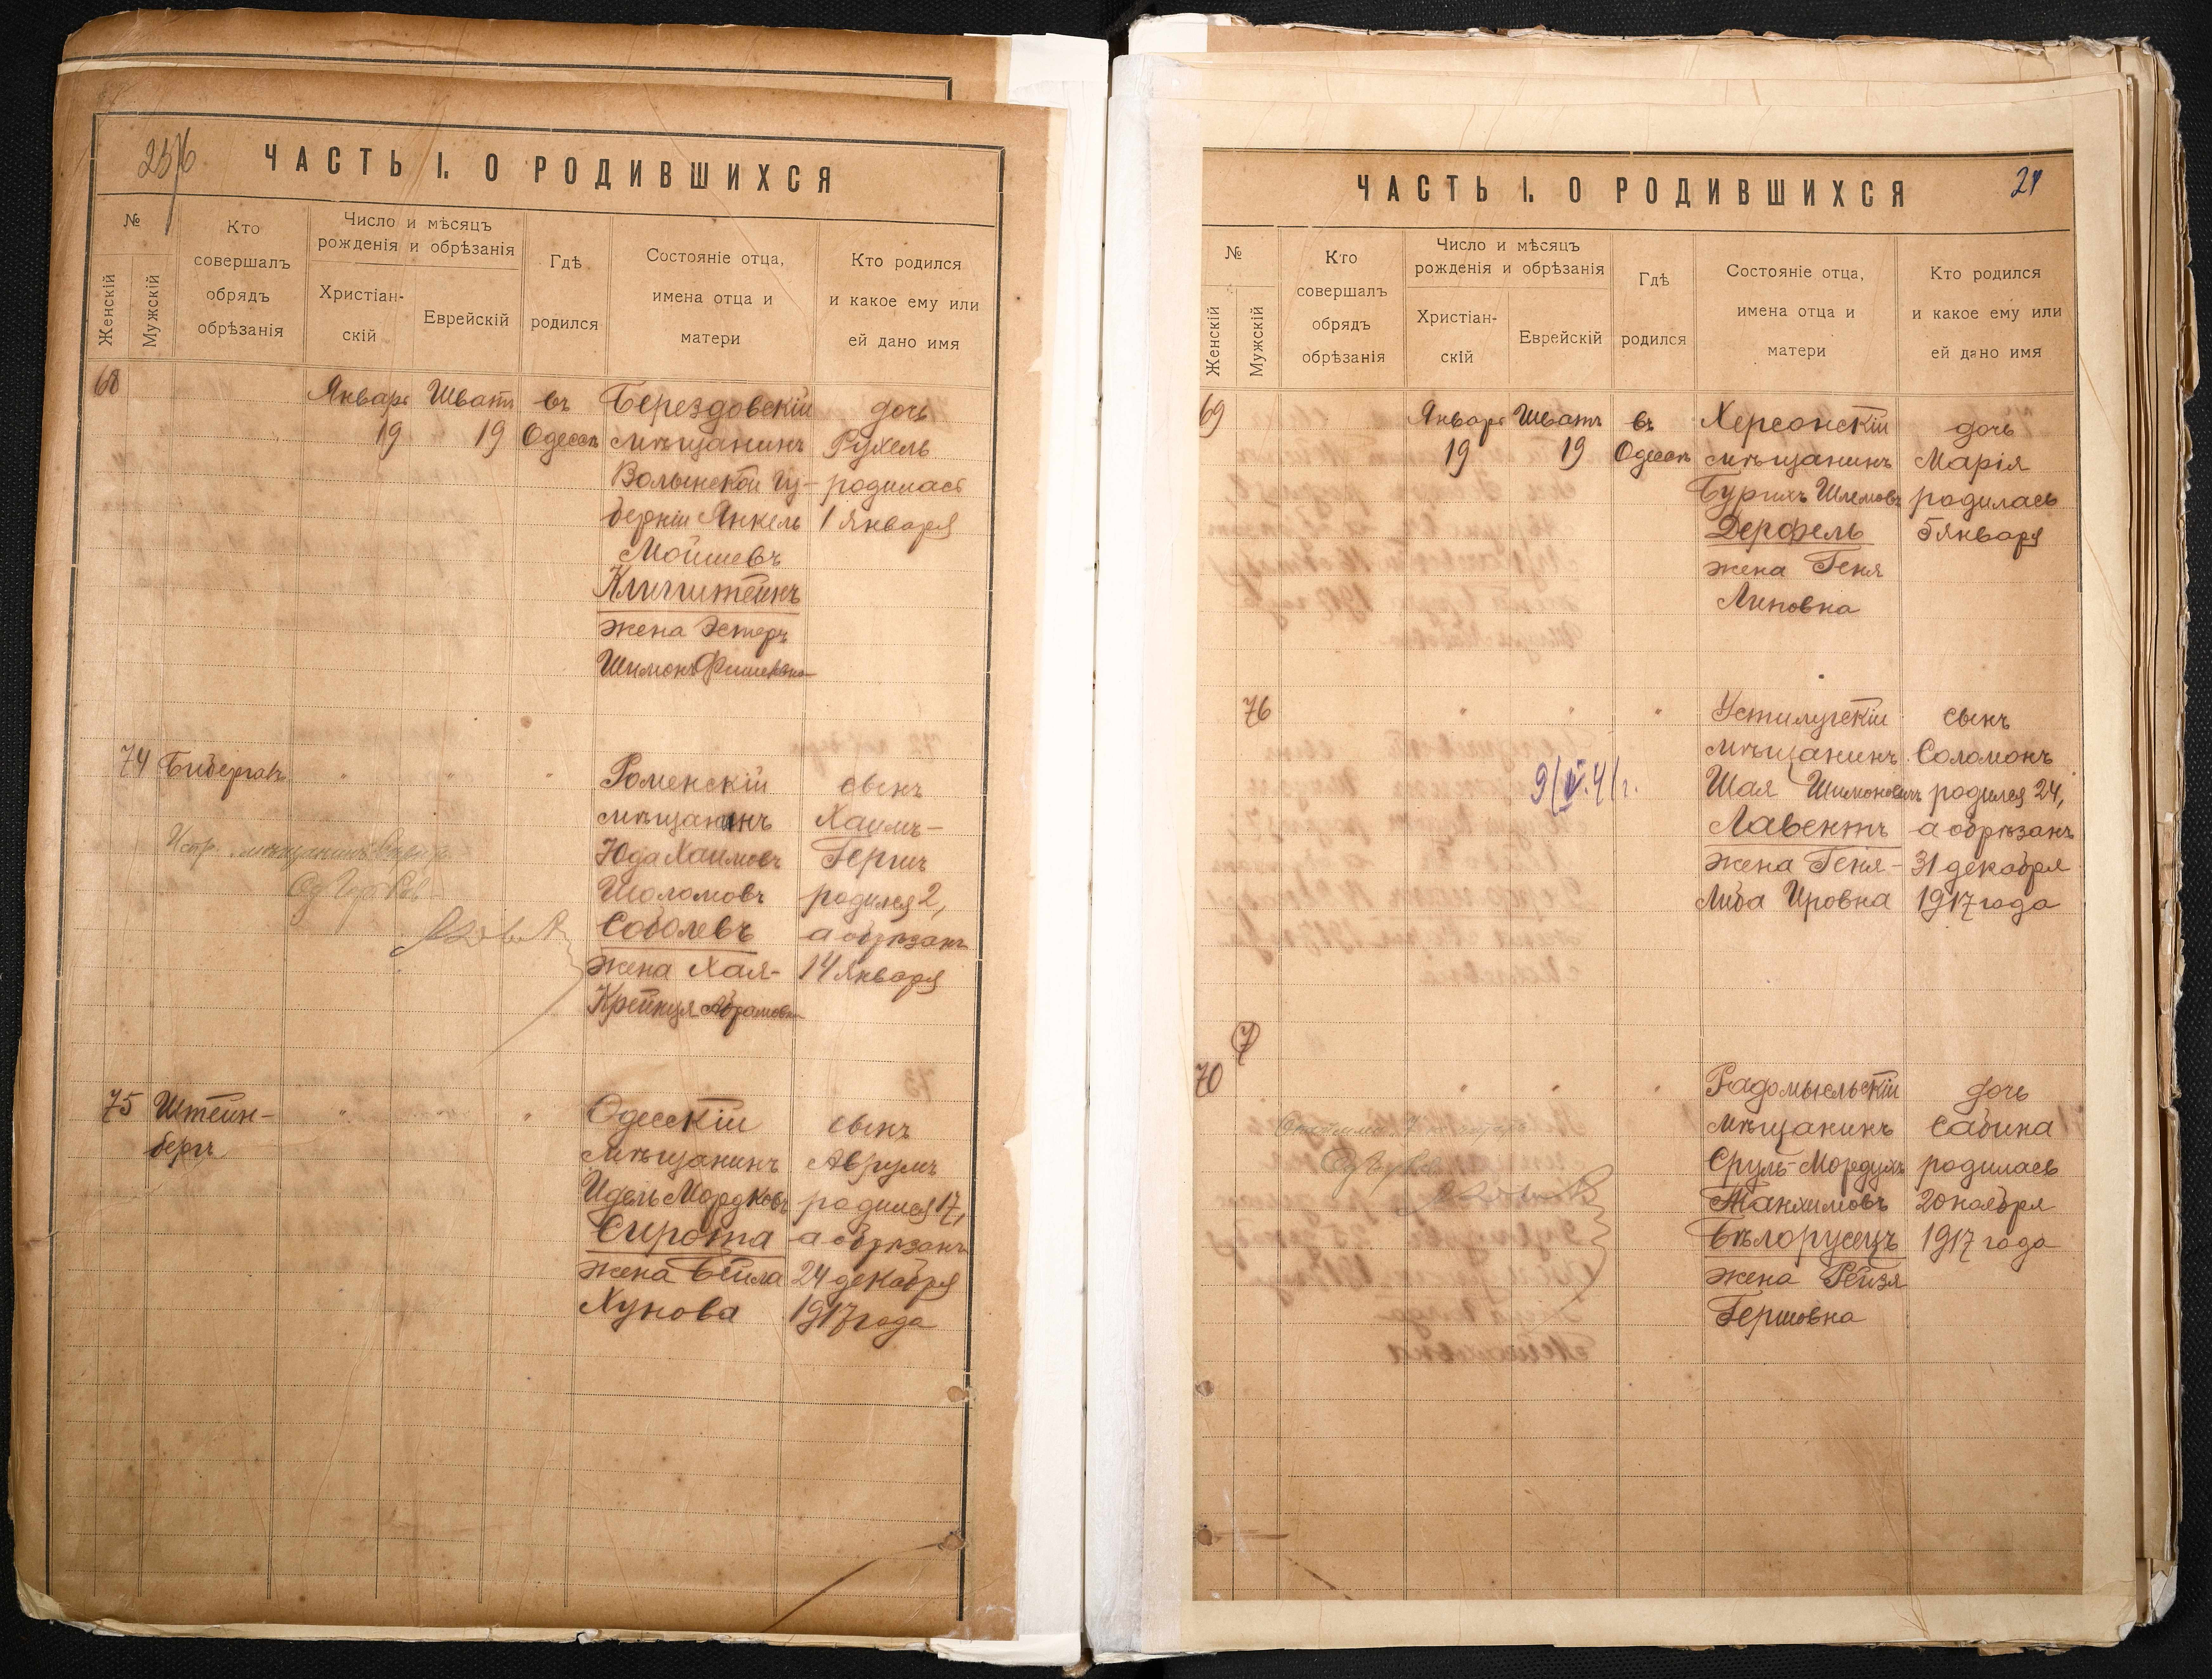 ЧАСТЬ I. О РОДИВШИХСЯ
№
Женскій
Мужскій
Кто
совершалъ
обрядъ
обрѣзанія
Число и мѣсяцъ
рожденія и обрѣзанія
Христіан-
скій
Еврейскій
Гдѣ
родился
Состояніе отца,
имена отца и
матери
Кто родился
и какое ему или
ей дано имя
68 Январь Шватъ въ Берездовскій дочь
19 19 Одессѣ мѣщанинъ Рухель
Волынской Гу- родилась
берніи Янкель 1 Января
Мойшевъ
жена Эстеръ
74 " " " Роменскій сынъ
мѣщанинъ Хаимъ-
Юда Хаимовъ Гершъ
Шоломовъ родился 2,
Соболевъ а обрѣзанъ
жена Хая- 14 Января
Крейнця Абрамовна
75 Штейн- " " " Одесскій сынъ
бергъ мѣщанинъ Аврумъ
Идель Мордковъ родился 17,
Сирота а обрѣзанъ
жена Бейла 24 декабря
Хунова 1917 года
ЧАСТЬ I. О РОДИВШИХСЯ
№
Женскій
Мужскій
Кто
совершалъ
обрядъ
обрѣзанія
Число и мѣсяцъ
рожденія и обрѣзанія
Христіан-
скій
Еврейскій
Гдѣ
родился
Состояніе отца,
имена отца и
матери
Кто родился
и какое ему или
ей дано имя
69 Январь Шватъ въ Херсонскій дочь
19 19 Одессѣ мѣщанинъ Марія
Шлемовъ родилась
Дерфель 5 января
жена Геня
Липовна
76 " " " Устилугскій сынъ
мѣщанинъ Соломонъ
Шая Шимоновичъ родился 24,
Лавентъ а обрѣзанъ
жена Геня- 31 декабря
Либа Ировна 1917 года
7
70 " " " Радомысльскій дочь
мѣщанинъ Сабина
Сруль-Мордухъ родилась
20 ноября
Бѣлорусецъ 1917 года
жена Рейзя
Гершовна